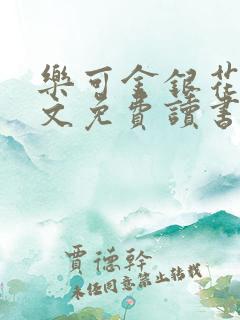 樂可金銀花
文免費讀書
賈德幹
未经同意禁止转载